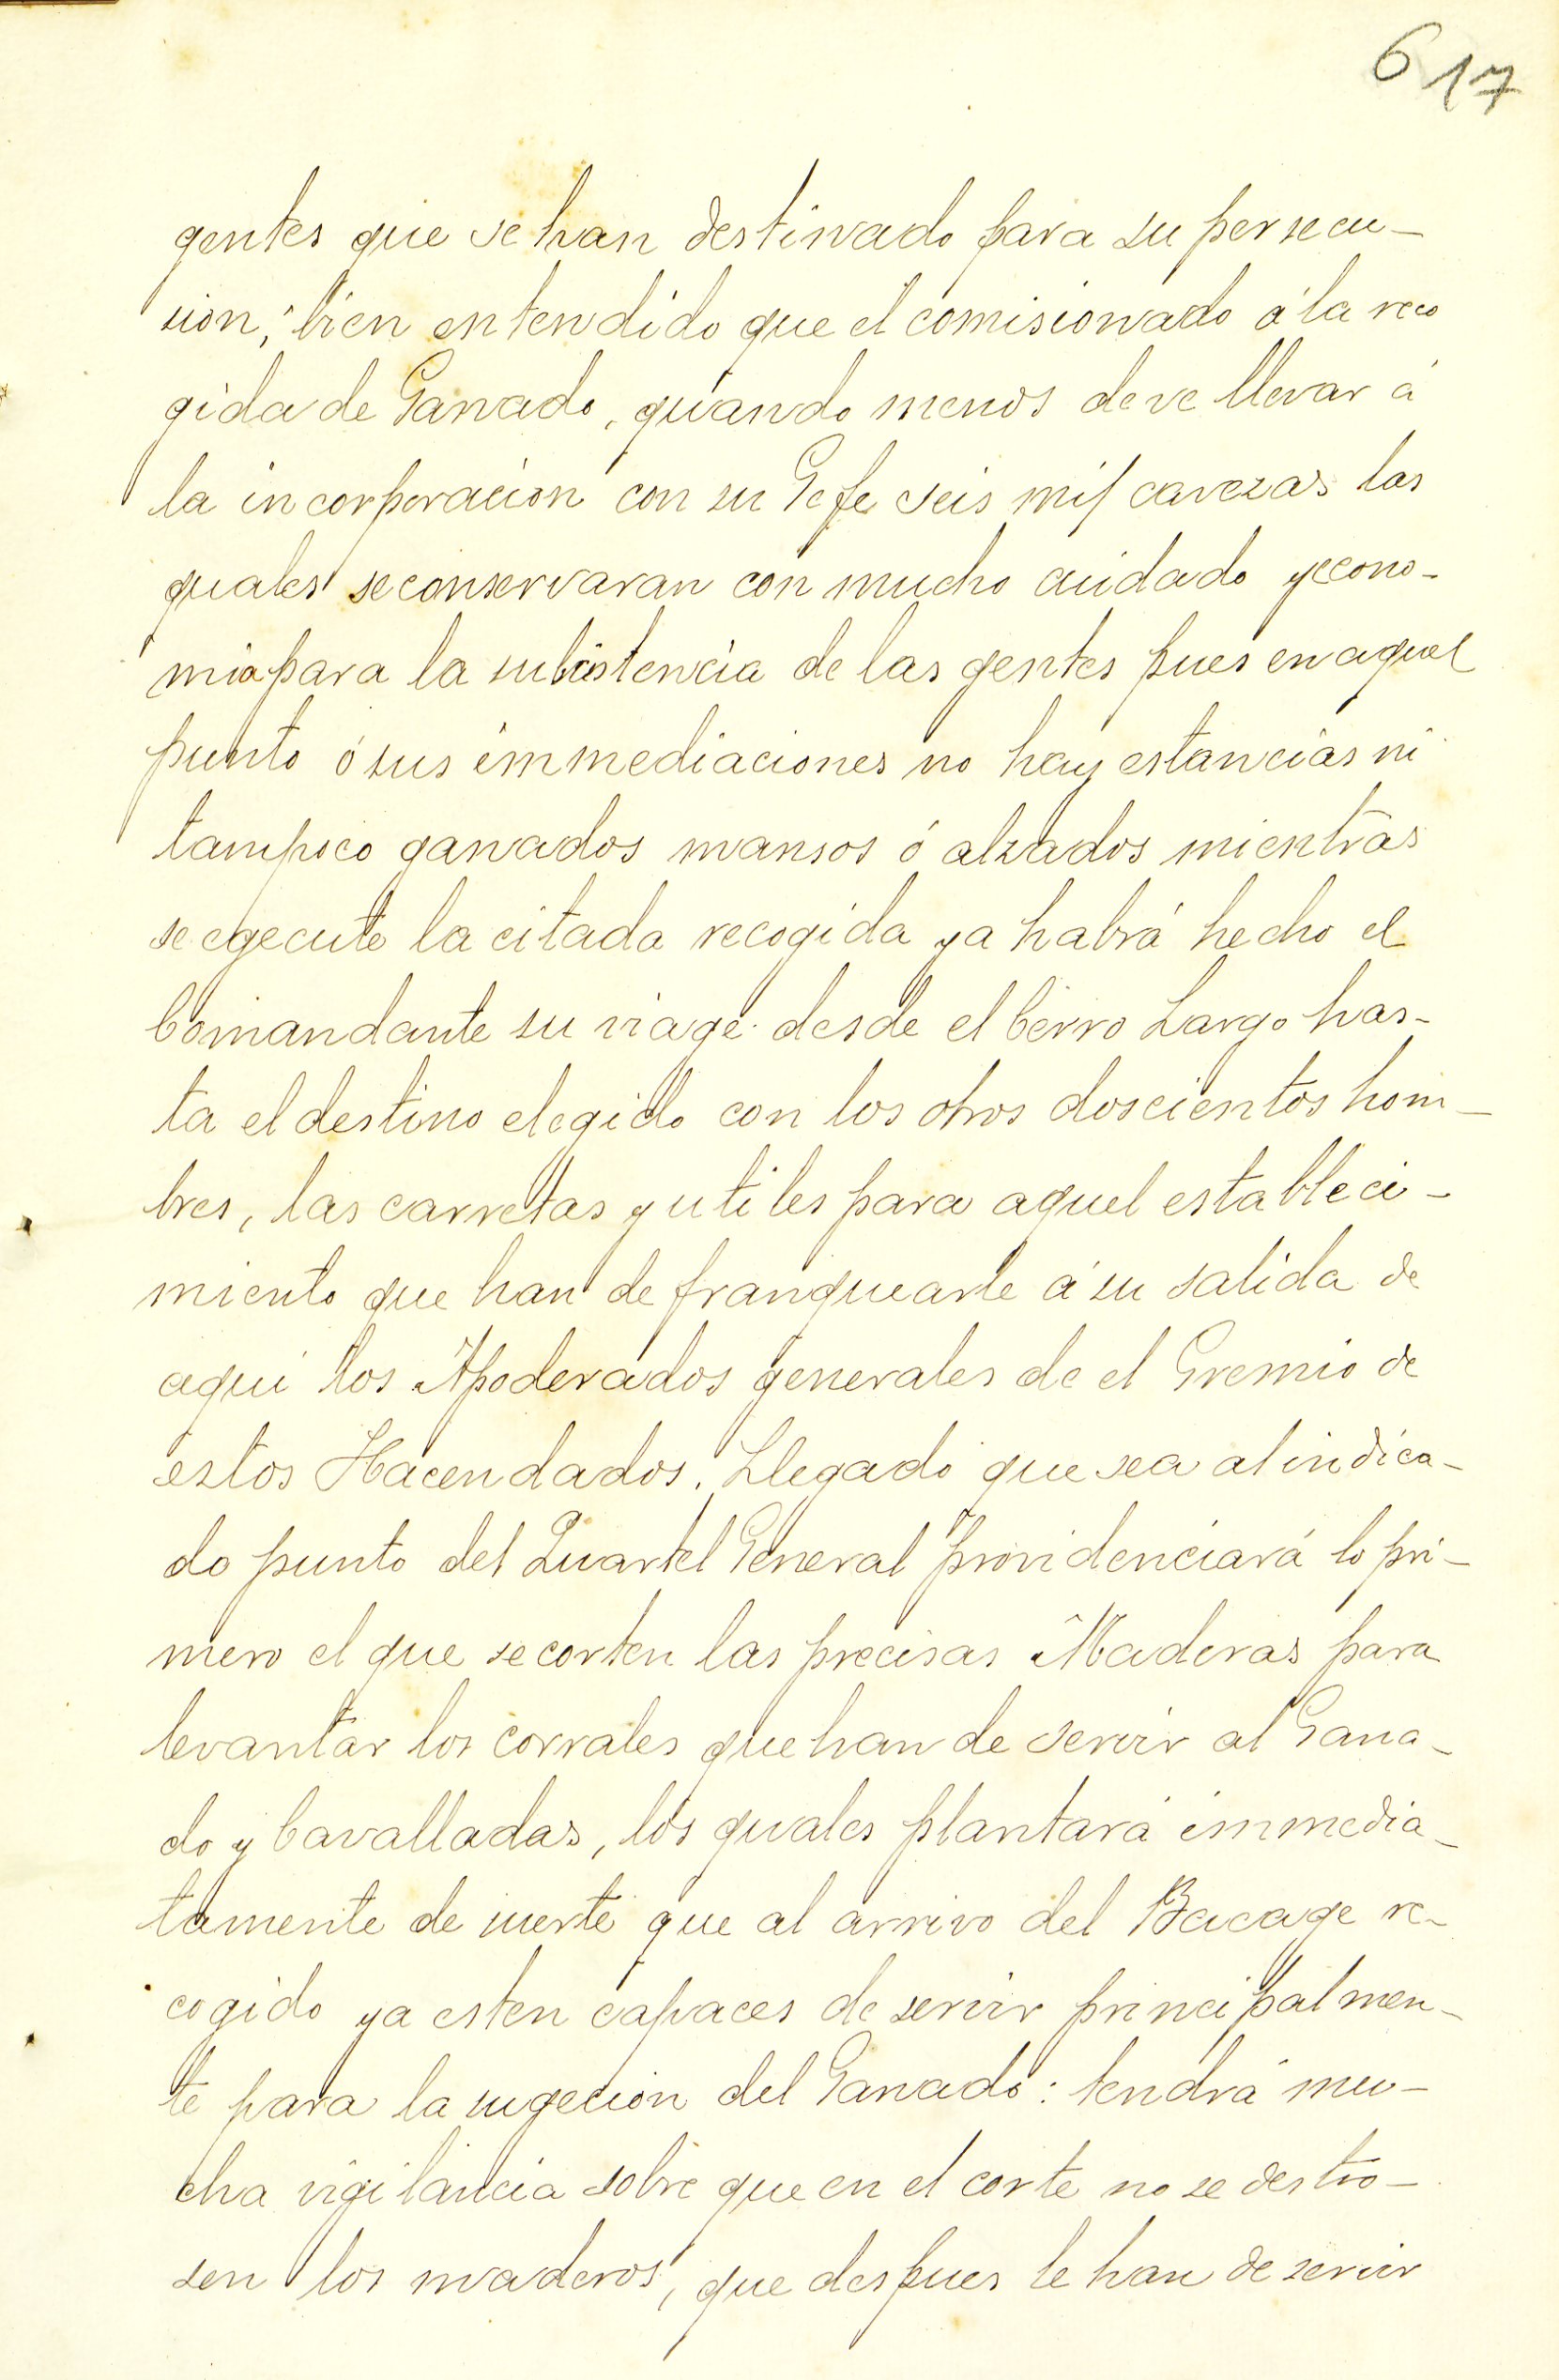 6 17
gentes que se han destinado para su persecu-
sion; bien entendido que el comisionado á la reco
gida de Ganado, quando menos deve llevar á
la incorporacion con su Gefe seis mil cavezas las
quales se conservaran con mucho cuidado y econo-
mia para la subsistencia de las gentes pues en aquel
punto ó sus immediaciones no hay estancias ni
tampoco ganados mansos ó alzados mientras
se egecute la citada recogida ya habrá hecho el
Comandante su viage desde el Cerro Largo has-
ta el destino elegido con los otros doscientos hom-
bres, las carretas y utiles para aquel estableci-
miento que han de franquearle á su salida de
aqui los Apoderados generales de el Gremio de
estos Hacendados. Llegado que sea al indica-
do punto del Quartel General providenciará lo pri-
mero el que se corten las precisas Maderas para
levantar los corrales que han de servir al Gana-
do y Cavalladas, los quales plantará immedia-
tamente de suerte que al arrivo del Bacage re-
cogido ya esten capaces de servir principalmen-
te para la sugecion del Ganado: tendrá mu-
cha vigilancia sobre que en el corte no se destro-
sen los maderos, que despues le han de servir